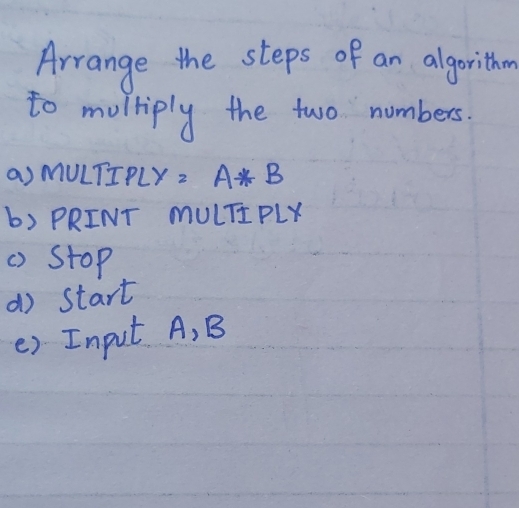 Arrange the steps of an algorithm
to multiply the two numbers.
a) MULTIPLY = A* B
b) PRINT MULTIPLY
c) Stop
d) Start
e) Input A, B